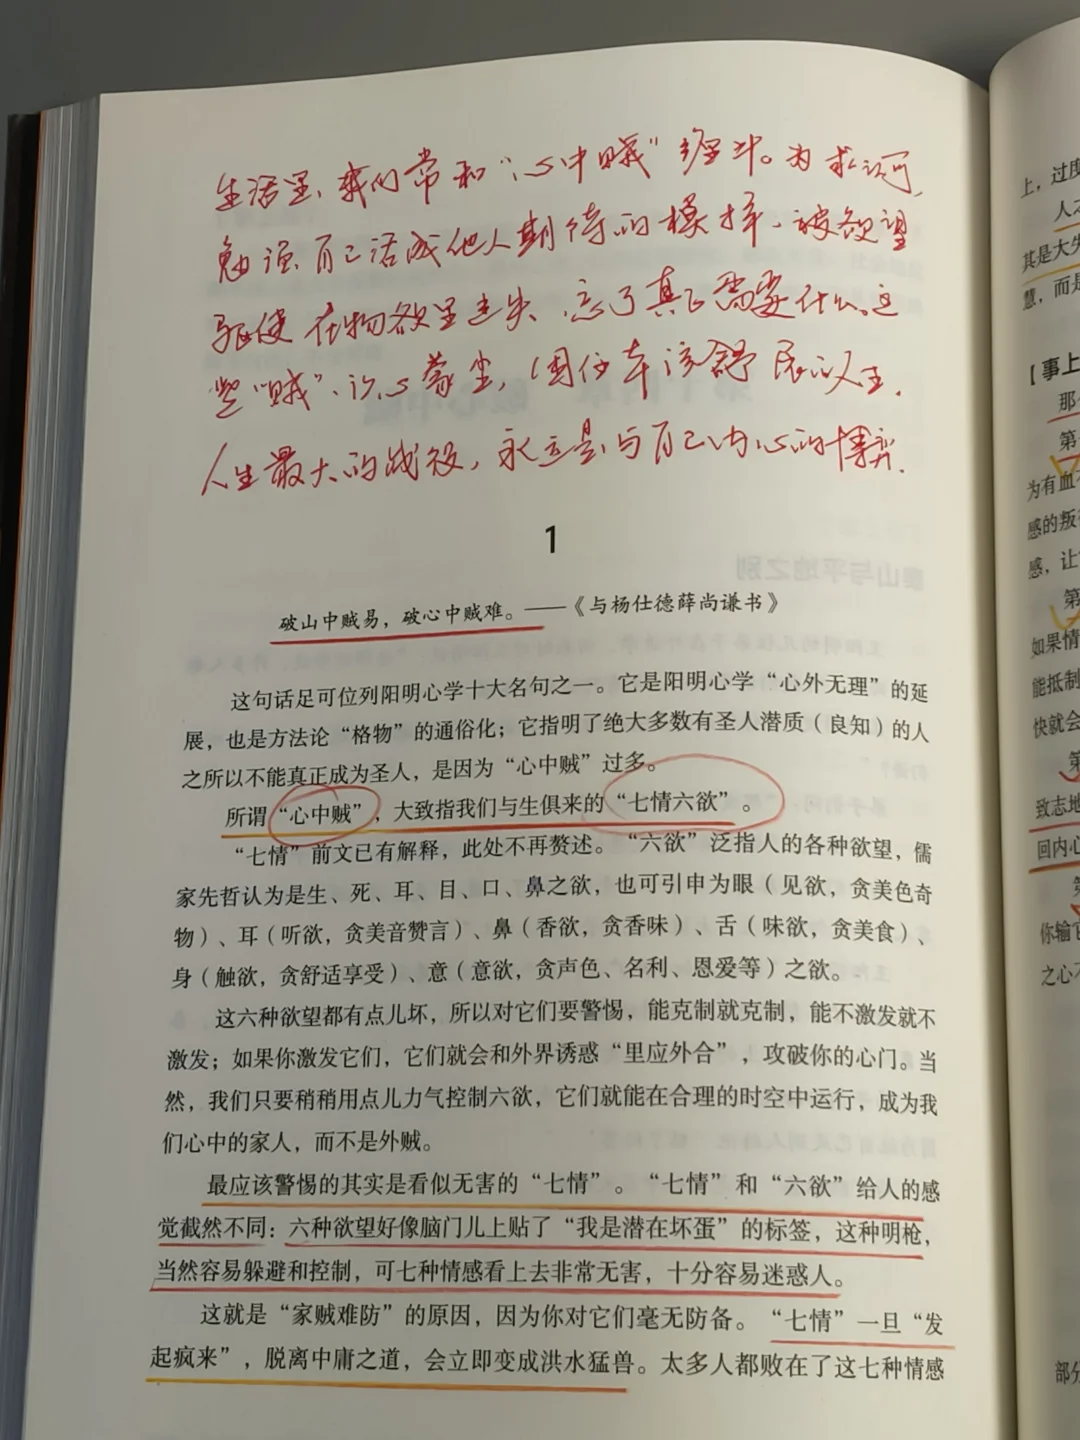 生活里、我们常和“心中贼”缠斗。为求认可,
勉强自己活成他人期待的模样、被欲望
驱使在物欲里走失、忘了真正需要什么。这
些“贼”、让心蒙尘，困住本该舒展的人生.
人生最大的战役，永远是与自己内心的博弈.
1
破山中贼易，破心中贼难。——《与杨仕德薛尚谦书》
这句话足可位列阳明心学十大名句之一。它是阳明心学“心外无理”的延
展，也是方法论“格物”的通俗化；它指明了绝大多数有圣人潜质（良知）的人
之所以不能真正成为圣人，是因为“心中贼”过多。
所谓“心中贼”，大致指我们与生俱来的“七情六欲”。
“七情”前文已有解释，此处不再赘述。“六欲”泛指人的各种欲望，儒
家先哲认为是生、死、耳、目、口、鼻之欲，也可引申为眼（见欲，贪美色奇
物）、耳（听欲，贪美音赞言）、鼻（香欲，贪香味）、舌（味欲，贪美食）、
身（触欲，贪舒适享受）、意（意欲，贪声色、名利、恩爱等）之欲。
这六种欲望都有点儿坏，所以对它们要警惕，能克制就克制，能不激发就不
激发；如果你激发它们，它们就会和外界诱惑“里应外合”，攻破你的心门。当
然，我们只要稍稍用点儿力气控制六欲，它们就能在合理的时空中运行，成为我
们心中的家人，而不是外贼。
最应该警惕的其实是看似无害的“七情”。“七情”和“六欲”给人的感
觉截然不同：六种欲望好像脑门儿上贴了“我是潜在坏蛋”的标签，这种明枪，
当然容易躲避和控制，可七种情感看上去非常无害，十分容易迷惑人。
这就是“家贼难防”的原因，因为你对它们毫无防备。“七情”一旦“发
起疯来”，脱离中庸之道，会立即变成洪水猛兽。太多人都败在了这七种情感
上，过度
人之
其是大失
慧，而是
【事上
那么
第
为有血
感的叛
感，让
第
如果情
能抵制
快就会
第
致志地
回内心
第
你输它
之心不
部分